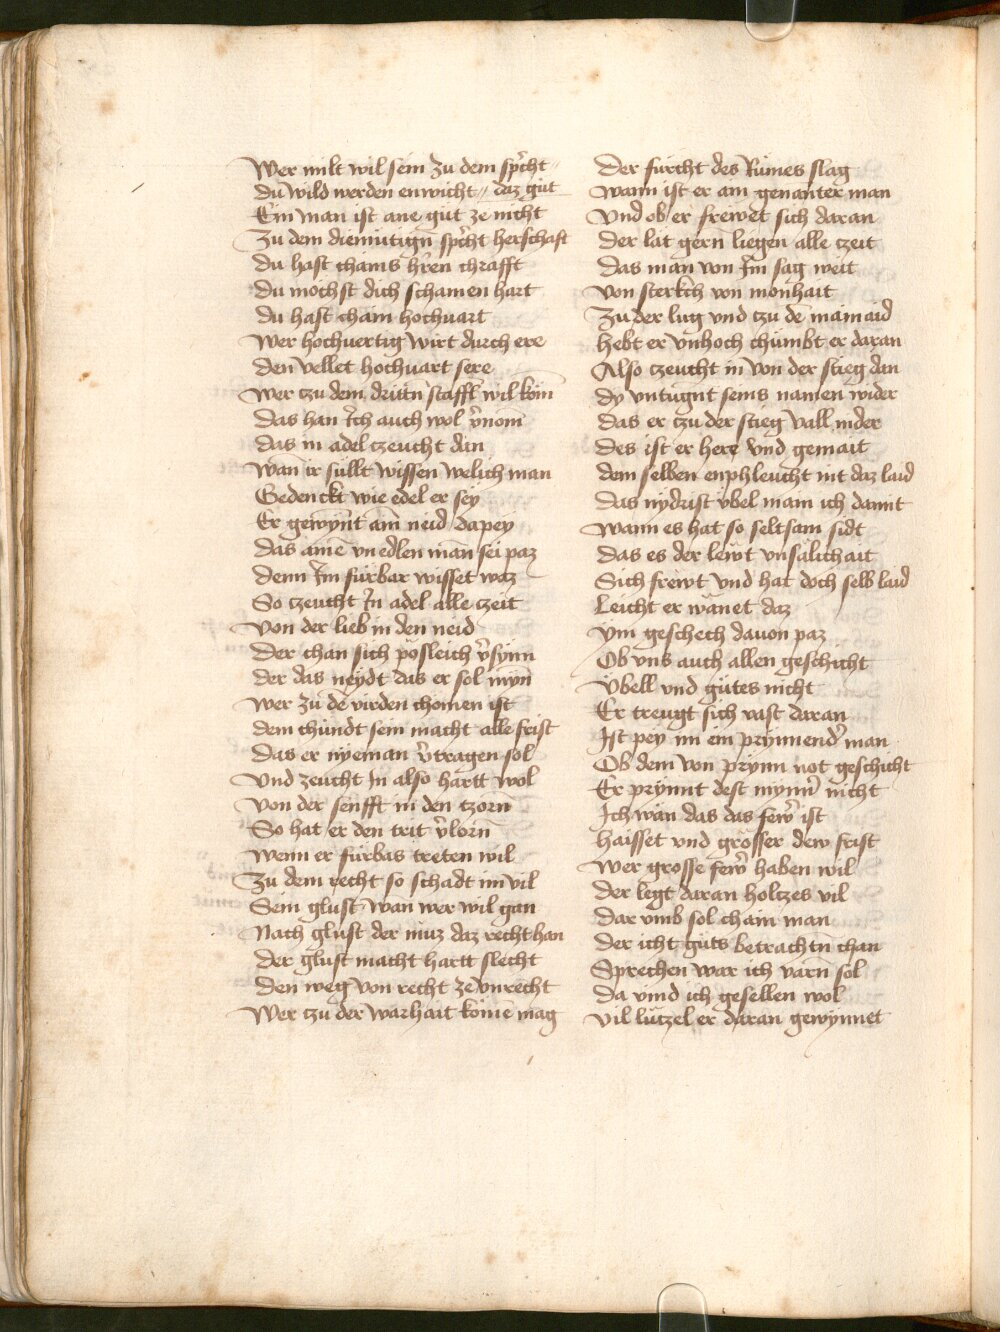 Wer milt wil sein zu dem sp͛cht
du wild werden enwicht daz gut
Ein man ist ane gut ze nicht
Zu dem diemutign̄ sp͛cht herschaft
du hast chains h͛ren chrafft
du mochst dich schamen hart
du hast chain hochuart
Wer hochuertig wirt durch ere
den vellet hochuart sere
Wer czu dem drittn̄ staffl wil kom̄
das han Ich auch wol v͛nom̄
das in adel czeucht dan
Wan ir sullt wissen welich man
Gedenckt wie edel er sey
Er gewynt am neid dapey
das ainē vnedlen man sei paz
denn Im furbar wisset waz
So czeucht In adel alle czeit
von der lieb in den neid
der chan sich posleich v͛synn
der das neydt das er sol myn̄
Wer zu dē virden chomen ist
dem chundt sein macht alle frist
das er nyeman v͛tragen sol
Vnd zeucht In also hartt wol
von der senfft in den czorn
So hat er den trit v͛lorn
wenn er furbas treten wil
Zu dem recht so schadt im vil
Sein glust wan wer wil gan
Nach glust der muz daz recht han
der glust macht hartt slecht
den weg von recht ze vnrecht
Wer czu der warhait komē mag
der furcht des Rumes slag
wann ist er am genanter man
Vnd ob er frewet sich daran
der lat gern liegen alle czeit
das man von Im sag weit
von sterkch von monhait
Zu der lug vnd czu dē mainaid
hebt er vnhoch chumbt er daran
Also czeucht in von der stieg dan
dy vntugnt seins namen wider
das er czu der stieg vall nider
des ist er here vnd gemait
dem selben enphleucht nit daz laid
das nydrist vbel main ich damit
wann es hat so seltsam sidt
das es der lewt vnsalichait
Sich frewt vnd hat doch selb laid
Leicht er wanet daz
ym geschech dauon paz
Ob vns auch allen geschicht
Vbell vnd gutes nicht
Er treugt sich vast daran
Ist pey im ein prynnend͛ man
Ob dem von prynn not geschicht
Er prynnt dest mynn͛ nicht
Ich wan das das few͛ ist
haisset vnd grosser dew frist
Wer grosse few͛ haben wil
der legt daran holtzes vil
dar vmb sol chain man
der icht guts betrachtn̄ chan
Sprechen war ich varn̄ sol
da vind ich gesellen wol
vil lutzel er daran gewynnet